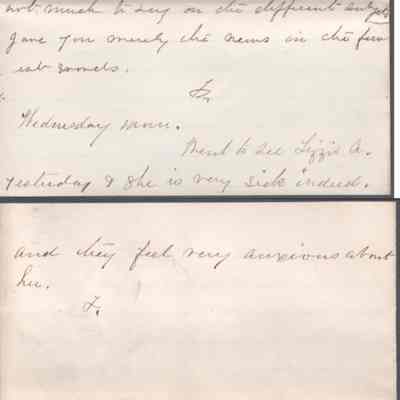 not much to say on the different subjects
gave you merely the news in the few
est words.
F.
Wednesday morn.
Went to see Lizzie A.
yesterday & she is very sick indeed.
and they feel very anxious about
her.
F.